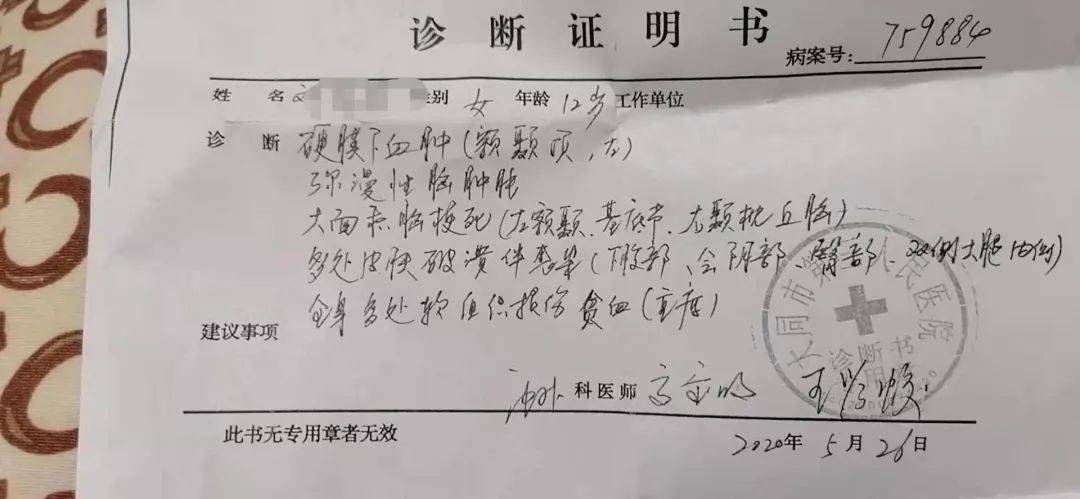 诊断证明书
病案号: 759884
姓 名 性别 女 年龄 12岁 工作单位
诊 断 硬膜下血肿(额颞顶,左)
弥漫性脑肿胀
大面积脑梗死(左额颞、基底节、右颞枕丘脑)
多处皮肤破溃伴感染(下腹部、会阴部、臀部、双侧大腿内侧)
全身多处软组织损伤 贫血(重度)
建议事项
科医师
大同市 人民医院
诊断书
此书无专用章者无效
2020年 5月 26日